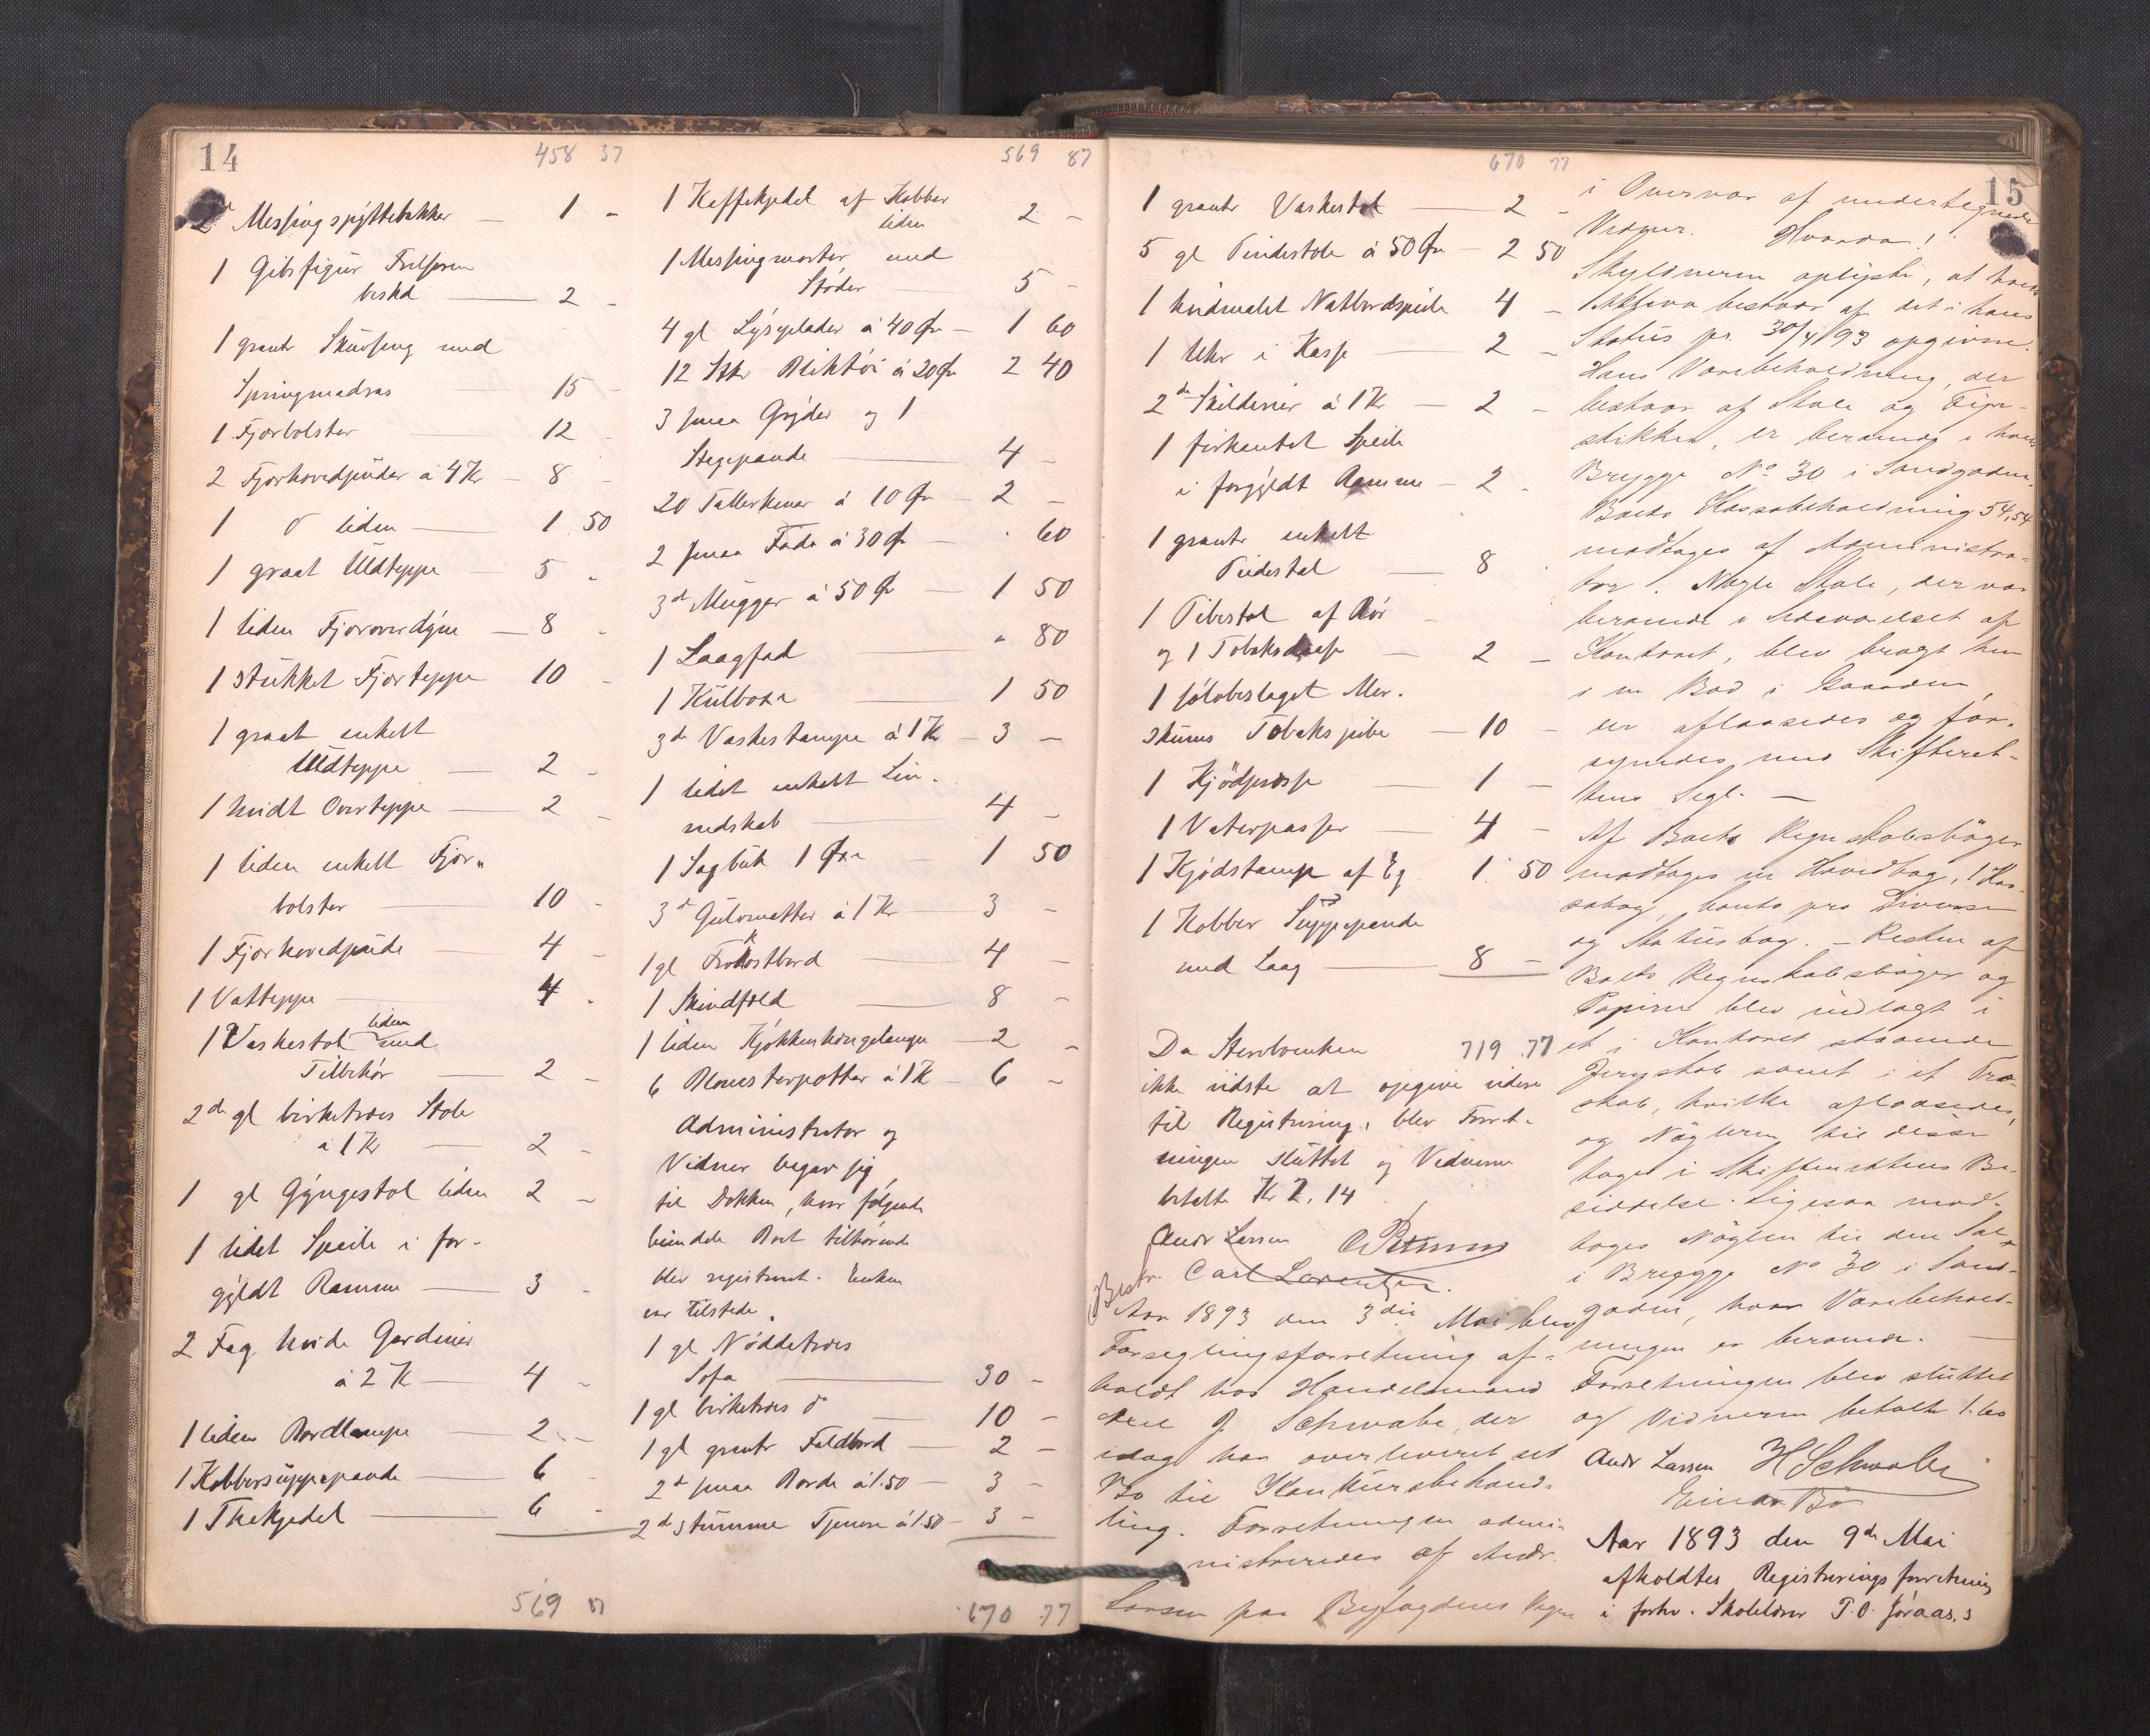 14
458 37
2 Messingspyttebakker — 1 -
1 Gibsfigur Frelseren
— 2 -
1 grantr Skuvseng med
Springmadras 15 -
1 Fjærbolster — 12 -
2 Fjærhovedpuder à 4 Kr — 8 -
1 do liden — 1 50
1 graat Uldteppe — 5 -
1 liden Fjæroverdyne — 8 -
1 stukket Fjærteppe 10 -
1 graat enkelt
Uldteppe — 2 -
1 hvidt Overteppe — 2 -
1 liden enkelt Fjær-
bolster — 10 -
1 Fjærhovedpude — 4 -
1 Vatteppe — 4 -
1 Vaskestol liden med
Tilbehør — 2 -
2de gl birketræes Stole
à 1 Kr — 2 -
1 gl Gyngestol liden 2 -
1 lidet Speile i for-
gyldt Ramme — 3 -
2 Fag hvide Gardiner
à 2 K — 4 -
1 liden Bordlampe — 2 -
1 Kobbersuppepande — 6 -
1 Thekjedel — 6 -
569 87
569 87
1 Kaffekjedel af Kobber
liden 2 -
1 Messingmorter med
Støder — 5 -
4 gl Lysplader à 40 Ør — 1 60
12 Stkr Bliktøi à 20 Ør 2 40
3 smaa Gryder og 1
Stegepande — 4 -
20 Tallerkener à 10 Ør — 2 -
2 smaa Fade à 30 Ør — - 60
3de Mugger à 50 Ør — 1 50
1 Laagfad — " 80
1 Kulboxe — 1 50
3de Vaskestampe à 1 Kr — 3 -
1 lidet enkelt Lin-
nedskab — 4 -
1 Sagbuk 1 Øxe — 1 50
3de Gulvmatter à 1 Kr — 3 -
1 gl Frokostbord — 4 -
1 Skindfeld — 8 -
1 liden Kjøkkenhængelampe — 2 -
6 Blomsterpotter à 1 K — 6 -
Administrator og
Vidner begav sig
til Dokken, hvor følgende
Boet tilhørende
blev registreret. Enken
var tilstede.
1 gl Nøddetræes
Sofa — 30 -
1 gl birketræes do — 10 -
1 gl grantr Foldbord — 2 -
2de smaa Borde à 1.50 3 -
2de stumme Tjenere à 1.50 — 3 -
670 77
670 77
1 grantr Vaskestol — 2 -
5 gl Pindestole à 50 Ør — 2 50
1 hvidmalet Natbordspeile 4 -
1 Uhr i Kasse — 2 -
2de Skilderier à 1 Kr — 2 -
1 firkantet Speile
i forgyldt Ramme — 2 -
1 grantr enkelt
Piedestal — 8 -
1 Pibestol af Rør
og 1 Tobaksdaase — 2 -
1 sølvbeslaget Mer-
skums Tobakspibe — 10 -
1 Kjødpresse — 1 -
1 Vaterpasser — 4 -
1 Kjødstamp af Eg 1 50
1 Kobber Suppepande
med Laag — 8 -
719 77
Da Stervboenken
ikke vidste at opgive videre
til Registrering, blev Forret-
ningen sluttet og Vidnerne
betalte Kr 2.14
Andr Larsen
Carl Lorentzen.
Aar 1893 den 3die Mai blev
Forseglingsforretning af-
holdt hos Handelsmand
J. Schwabe, der
idag har overleveret sit
Bo til Konkursbehand-
ling. Forretningen admi-
nistreredes af Andr.
Larsen paa Byfogdens Vegne
15
i Overvær af undertegnede
Vidner. Hvorda!
Skyldneren oplyste, at hans
Aktiva bestaar af det i hans
Status pr 30/4 93 opgivne.
Hans Varebeholdning, der
bestaar af Stole og Fyr-
stikker, er beroende i hans
Brygge No 30 i Sandgaden.
Boets Kassabeholdning 54,54
modtages af Administra-
tor. Nogle Stole, der var
beroende i Sideværelset af
Kontoret, blev bragt hen
i en Bod i Gaarden,
der aflaasedes og for-
synedes med Skifteret-
tens Segl. —
Af Boets Regnskabsbøger
modtages en Hovedbog, 1 Kas-
sabog, Conto pro Diverse
og Statusbog. — Resten af
Boets Regnskabsbøger og
Papirer blev indlagt i
et i Kontoret staaende
Jernskab samt i et Træ-
skab, hvilke aflaasedes,
og Nøglerne til disse
toges i Skifterettens Be-
siddelse. Ligesaa mod-
toges Nøglen til den Sal
i Brygge No 30 i Sand-
gaden, hvor Varebehold-
ningen er beroende. —
Forretningen blev sluttet
og Vidnerne betalte 1.60
Andr Larsen H Schwabe
Einar Bø
Aar 1893 den 9de Mai
afholdtes Registreringsforretning
i forhv. Skolelærer T. O.